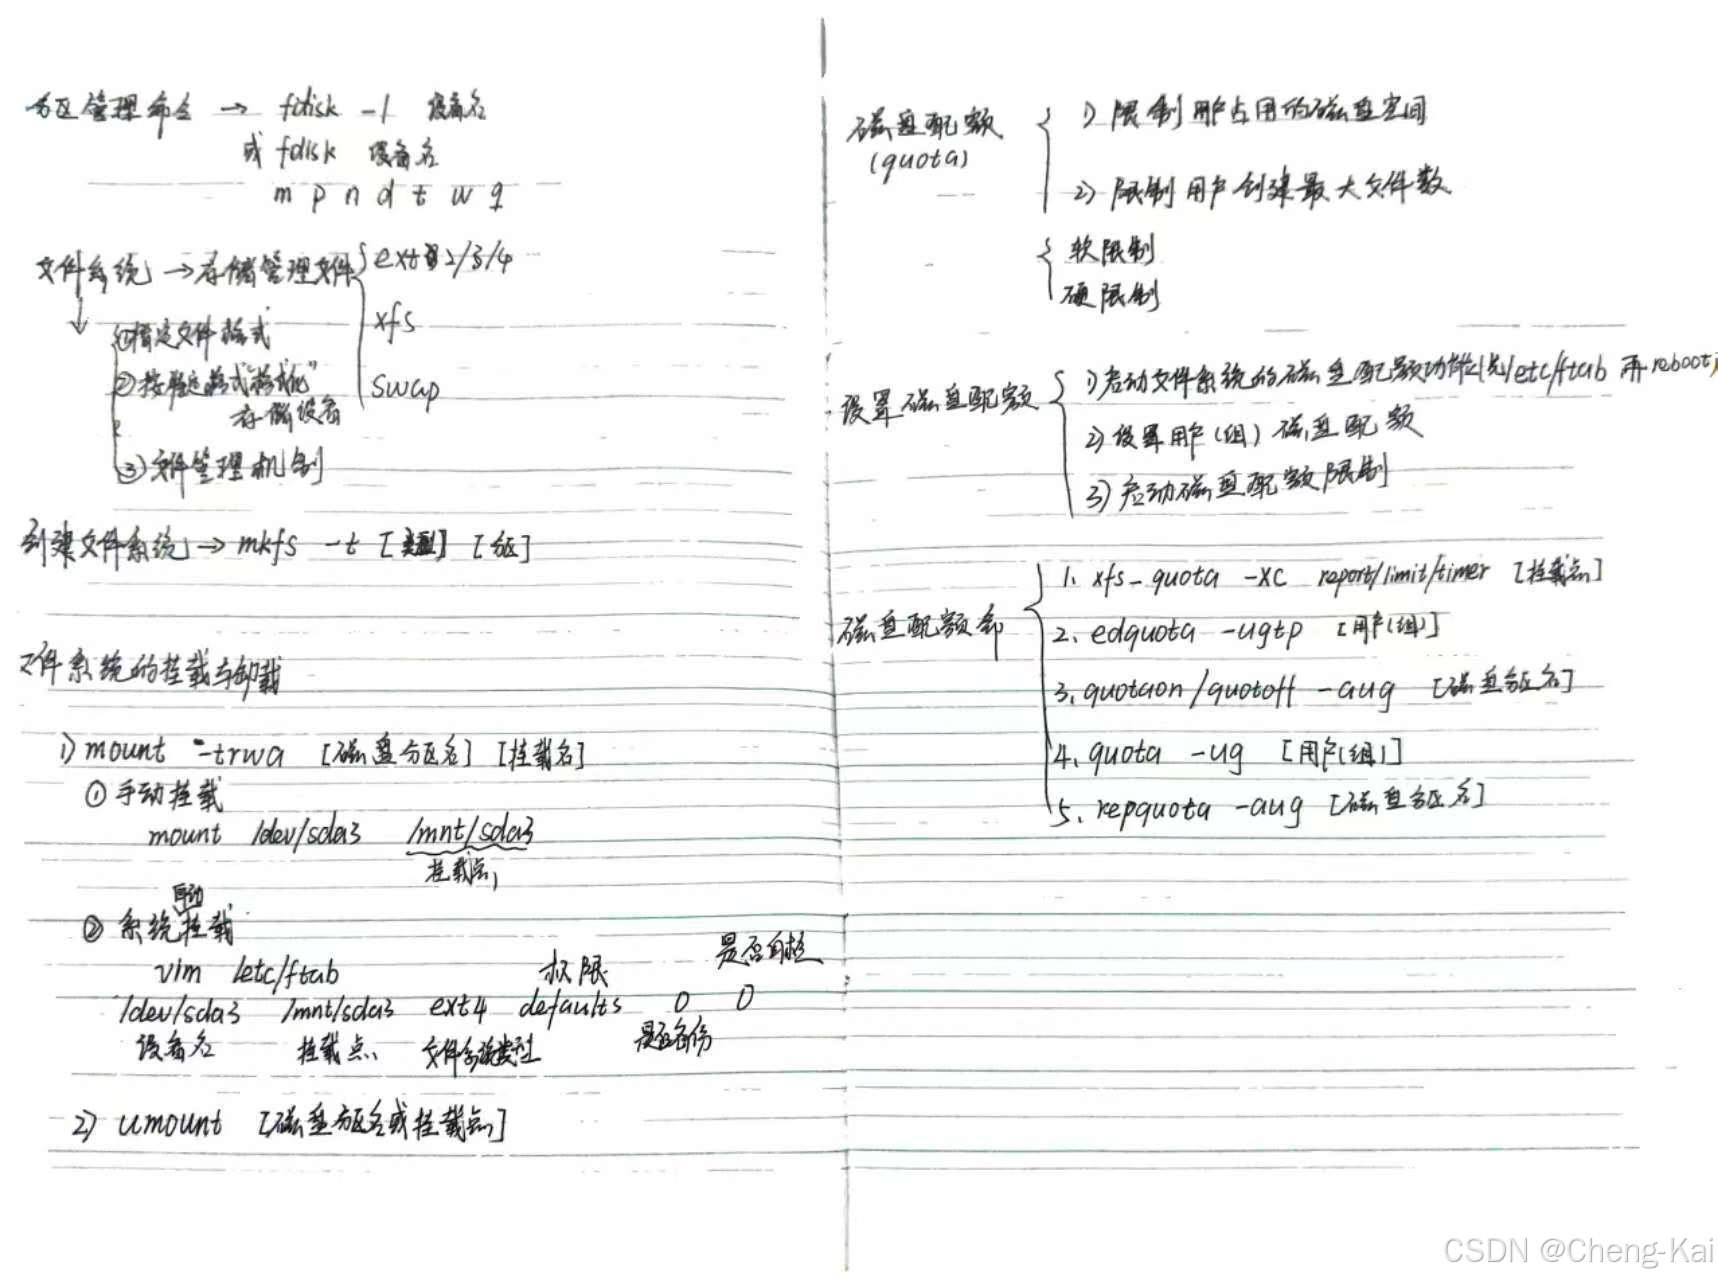 分区管理命令 → fdisk -l 设备名
或 fdisk 设备名
m p n d t w q
文件系统 → 存储管理文件
ext2/3/4
xfs
swap
①指定文件格式
②按照 格式"格式化"
存储设备
③文件管理机制
创建文件系统 → mkfs -t [类型] [分区]
文件系统的挂载与卸载
1) mount -trwa [磁盘分区名] [挂载名]
① 手动挂载
mount /dev/sda3 /mnt/sda3
挂载点
② 系统自动挂载
vim /etc/ftab
权限 是否自检
/dev/sda3 /mnt/sda3 ext4 defaults 0 0
设备名 挂载点 文件系统类型 是否备份
2) umount [磁盘分区名或挂载点]
磁盘配额
(quota)
1) 限制用户占用的磁盘空间
2) 限制用户创建最大文件数
软限制
硬限制
设置磁盘配额
1) 启动文件系统的磁盘配额功能(先/etc/ftab 再reboot)
2) 设置用户(组) 磁盘配额
3) 启动磁盘配额限制
磁盘配额命令
1. xfs_quota -xc report/limit/timer [挂载点]
2. edquota -ugtp [用户(组)]
3. quotaon/quotoff -aug [磁盘分区名]
4. quota -ug [用户(组)]
5. repquota -aug [磁盘分区名]
CSDN @Cheng-Kai